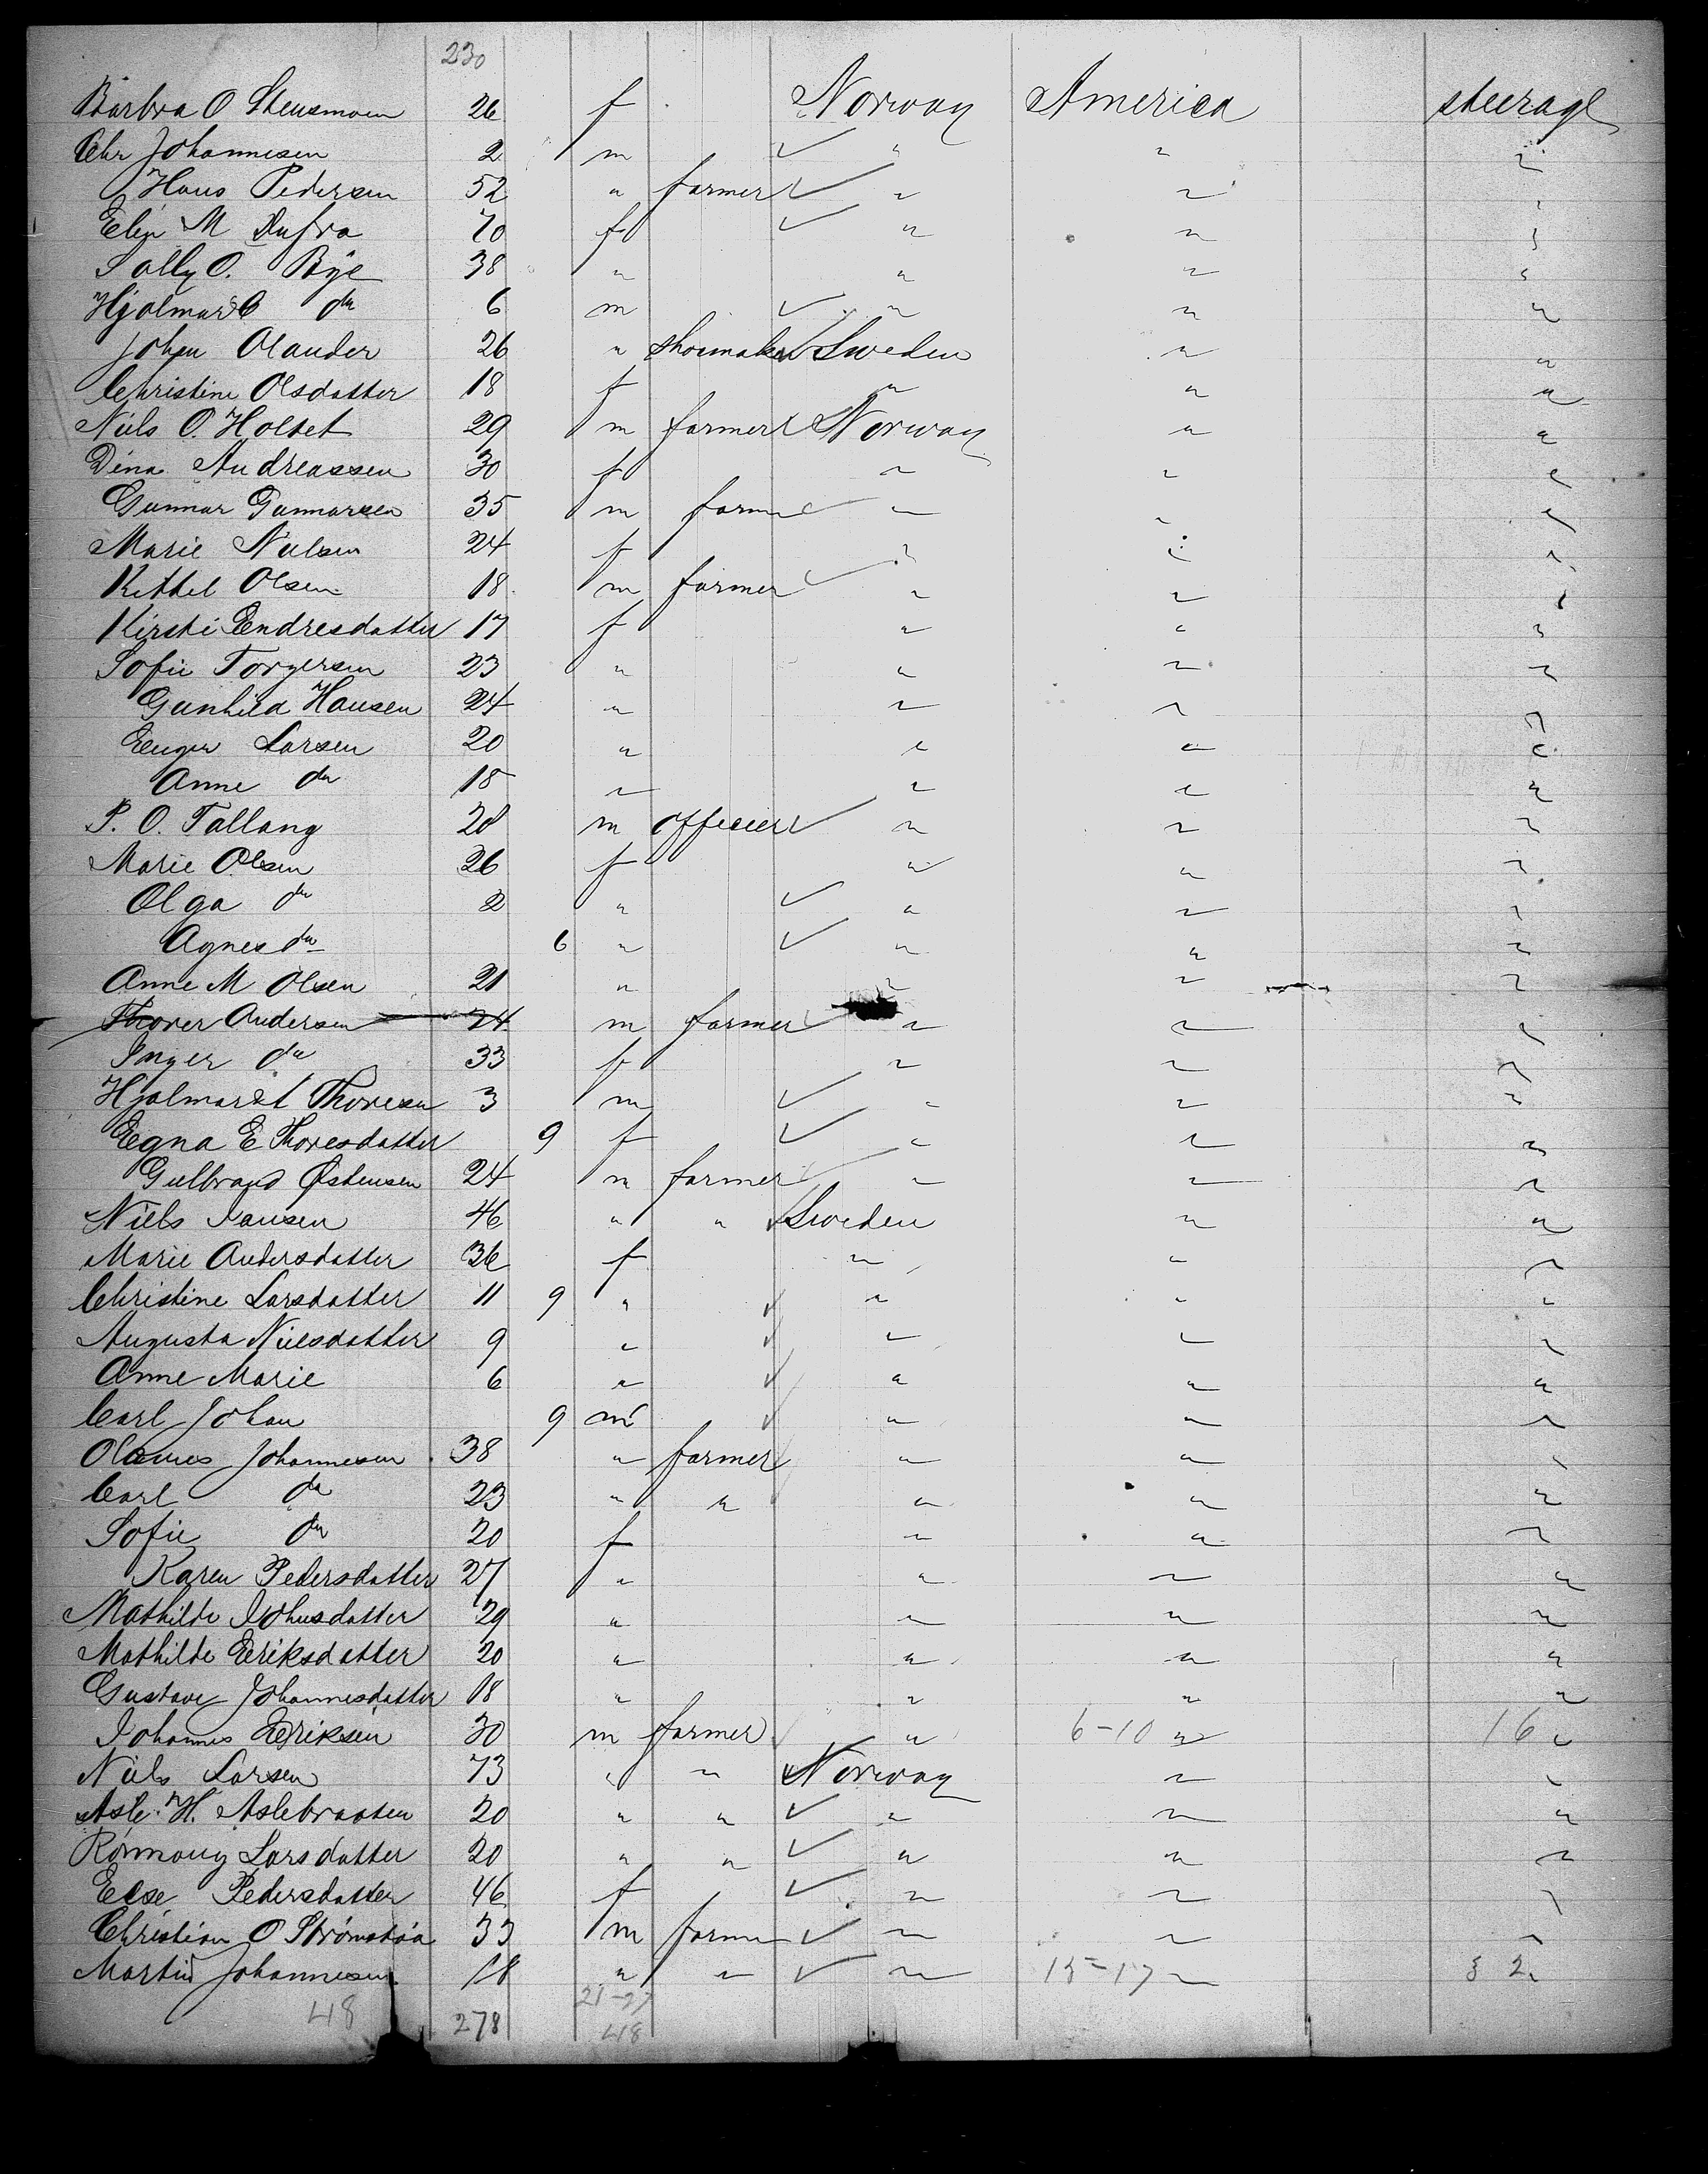 230
Barbra O Stensmoen 26 f Norway America steerage
Chr Johannesen 2 m ✓ " " "
Hans Pedersen 52 " farmer ✓ " " "
Elen M 70 f ✓ " " "
Sally O. Bye 38 " " " "
Hjalmar do 6 m ✓ " " "
Johan Olander 26 " shoemaker ✓ Sweden " "
Christine Olsdatter 18 f " " "
Niels O. Holtet 29 m farmer ✓ Norway " "
Dina Andreassen 30 f " " "
Gunnar Gunnarsen 35 m farmer ✓ " " "
Marie Nielsen 24 f " " "
Kittel Olsen 18 m farmer ✓ " " "
Kirsti Endresdatter 17 f " " "
Sofie Torgersen 23 " " " "
Gunhild Hansen 24 " " " "
Enger Larsen 20 " " " "
Anne do 18 " " " "
P. O. Tallang 28 m officier ✓ " " "
Marie Olsen 26 f " " "
Olga do 2 " ✓ " " "
Agnes do 6 " ✓ " " "
Anne M Olsen 21 " " " "
Thorer Andersen 24 m farmer ✓ " " "
Inger do 33 f " " "
Hjalmar Thoresen 3 m ✓ " " "
Egna E Thoresdatter 9 f ✓ " " "
Gulbrand Østensen 24 m farmer ✓ " " "
Niels Jansen 46 " " ✓ Sweden " "
Marie Andersdatter 36 f " " "
Christine Larsdatter 11 9 " ✓ " " "
Augusta Nielsdatter 9 " ✓ " " "
Anne Marie 6 " ✓ " " "
Carl Johan 9 m ✓ " " "
Johannesen 38 " farmer " " "
Carl do 23 " " " " "
Sofie do 20 f " " "
Karen Pedersdatter 27 " " " "
Mathilde Johnsdatter 29 " " " "
Mathilde Eriksdatter 20 " " " "
Gustave Johannesdatter 18 " " " "
Johannes Eriksen 30 m farmer " 6-10 " 16 "
Niels Larsen 73 " " ✓ Norway " "
Asle H. Aslebraaten 20 " " ✓ " " "
Rønnaug Larsdatter 20 " " ✓ " " "
Else Pedersdatter 46 f ✓ " " "
Christian O Strømstøa 33 m farmer ✓ " " "
Martin Johannesen 18 " " ✓ " 15-17 " 2 "
48 278 21-27
48